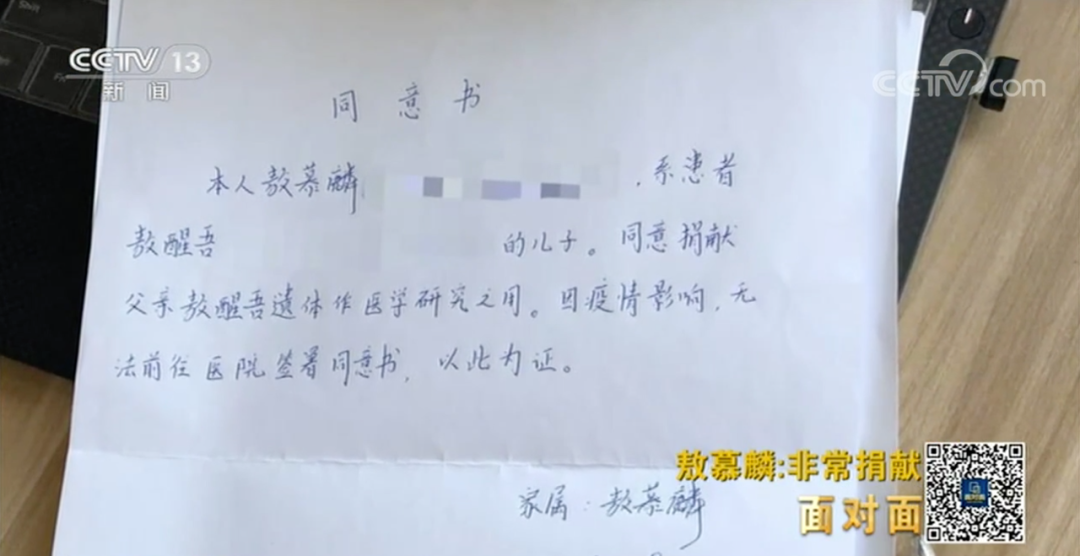 CCTV 13
新闻
CCTV.com
同意书
本人敖慕麟，系患者
敖醒吾的儿子。同意捐献
父亲敖醒吾遗体作医学研究之用。因疫情影响，无
法前往医院签署同意书，以此为证。
家属：敖慕麟
敖慕麟:非常捐献
面对面